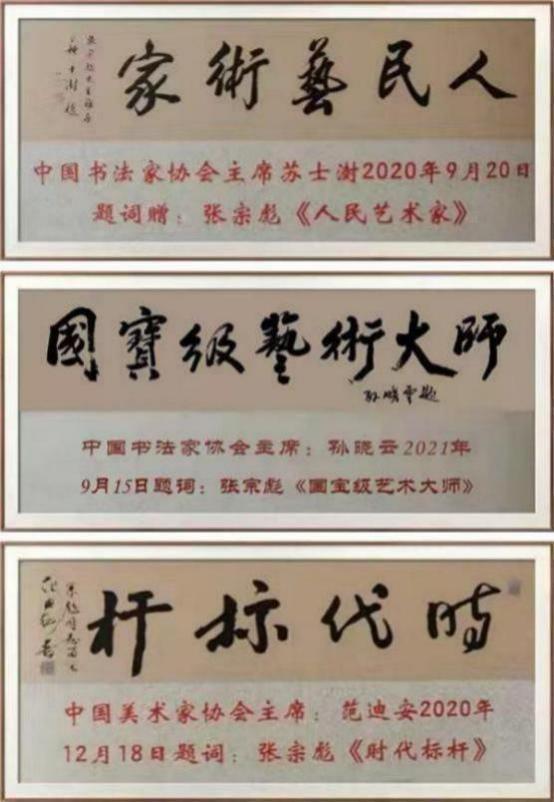 人民藝術家
中国书法家协会主席苏士澍2020年9月20日
题词赠：张宗彪《人民艺术家》
國寶级藝術大师
孙晓雲题
中国书法家协会主席：孙晓云2021年
9月15日题词：张宗彪《国宝级艺术大师》
時代标杆
中国美术家协会主席：范迪安2020年
12月18日题词：张宗彪《时代标杆》